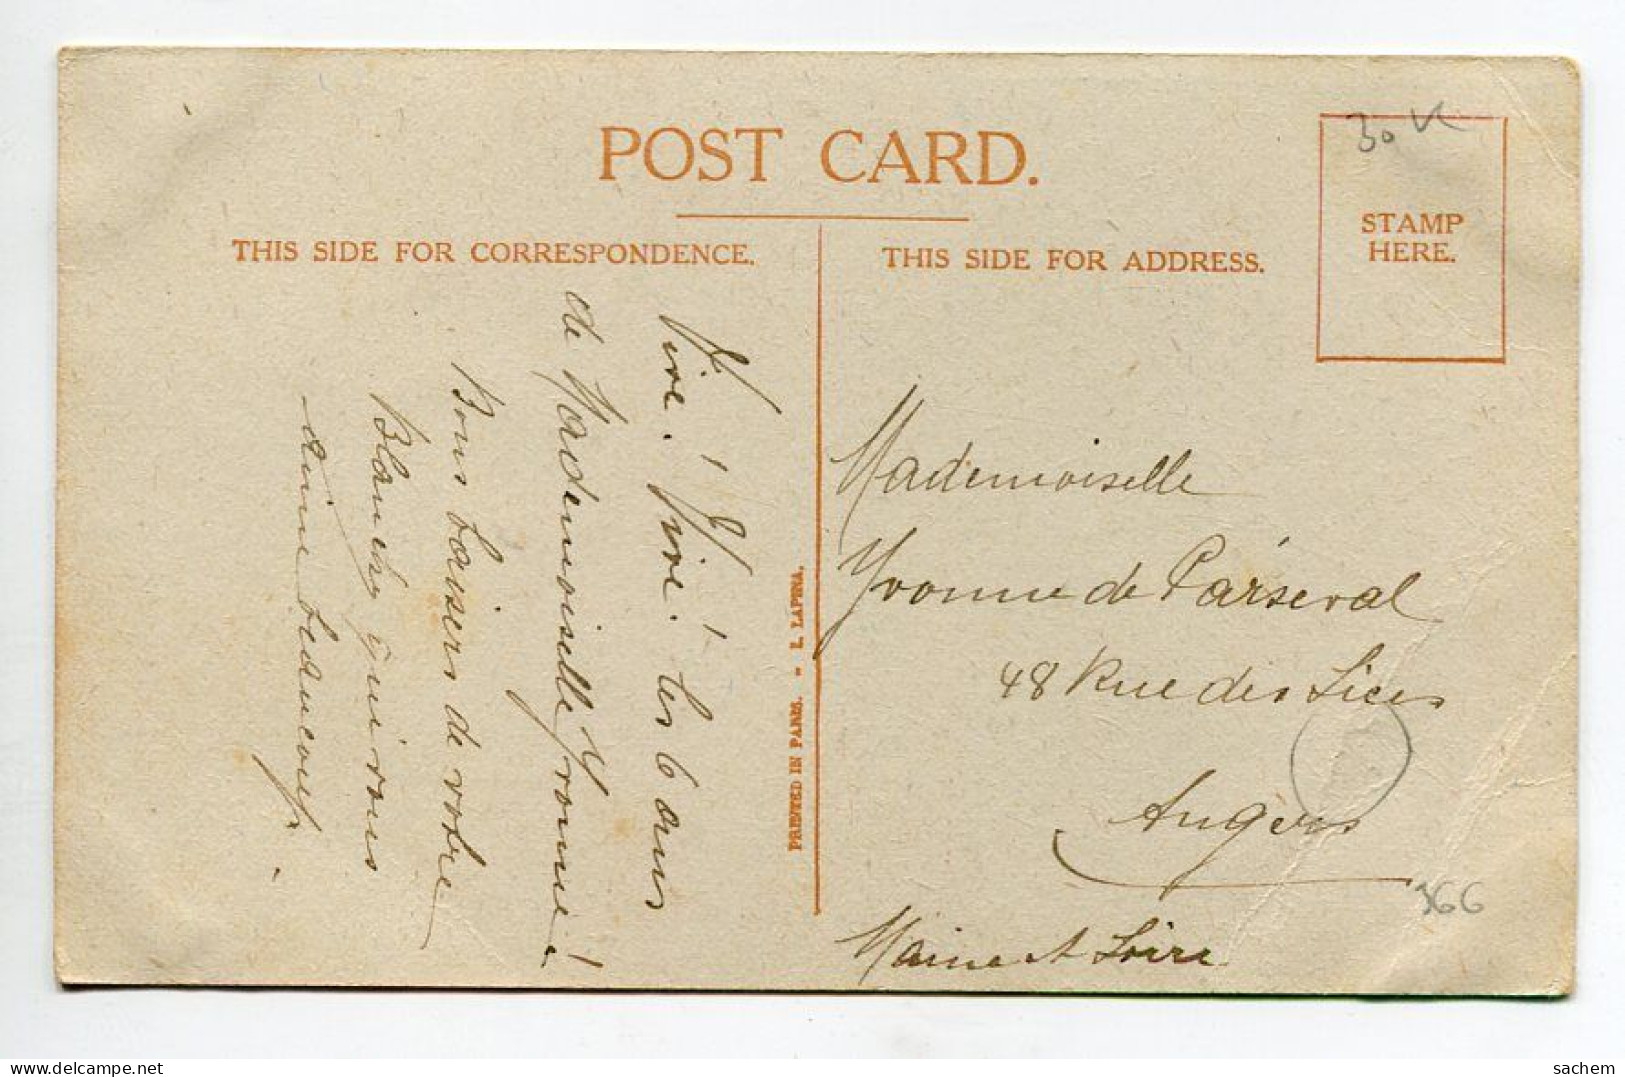 POST CARD.
THIS SIDE FOR CORRESPONDENCE.
THIS SIDE FOR ADDRESS.
STAMP
HERE.
30
Vive! Vive! les 6 ans
de Mademoiselle Yvonne!
Bons baisers de votre
Blanche qui vous
aime beaucoup.
PRINTED IN PARIS. - L. LAPINA.
Mademoiselle
Yvonne de Parseval
48 Rue des Lices
Angers
Maine et Loire
366
sachem